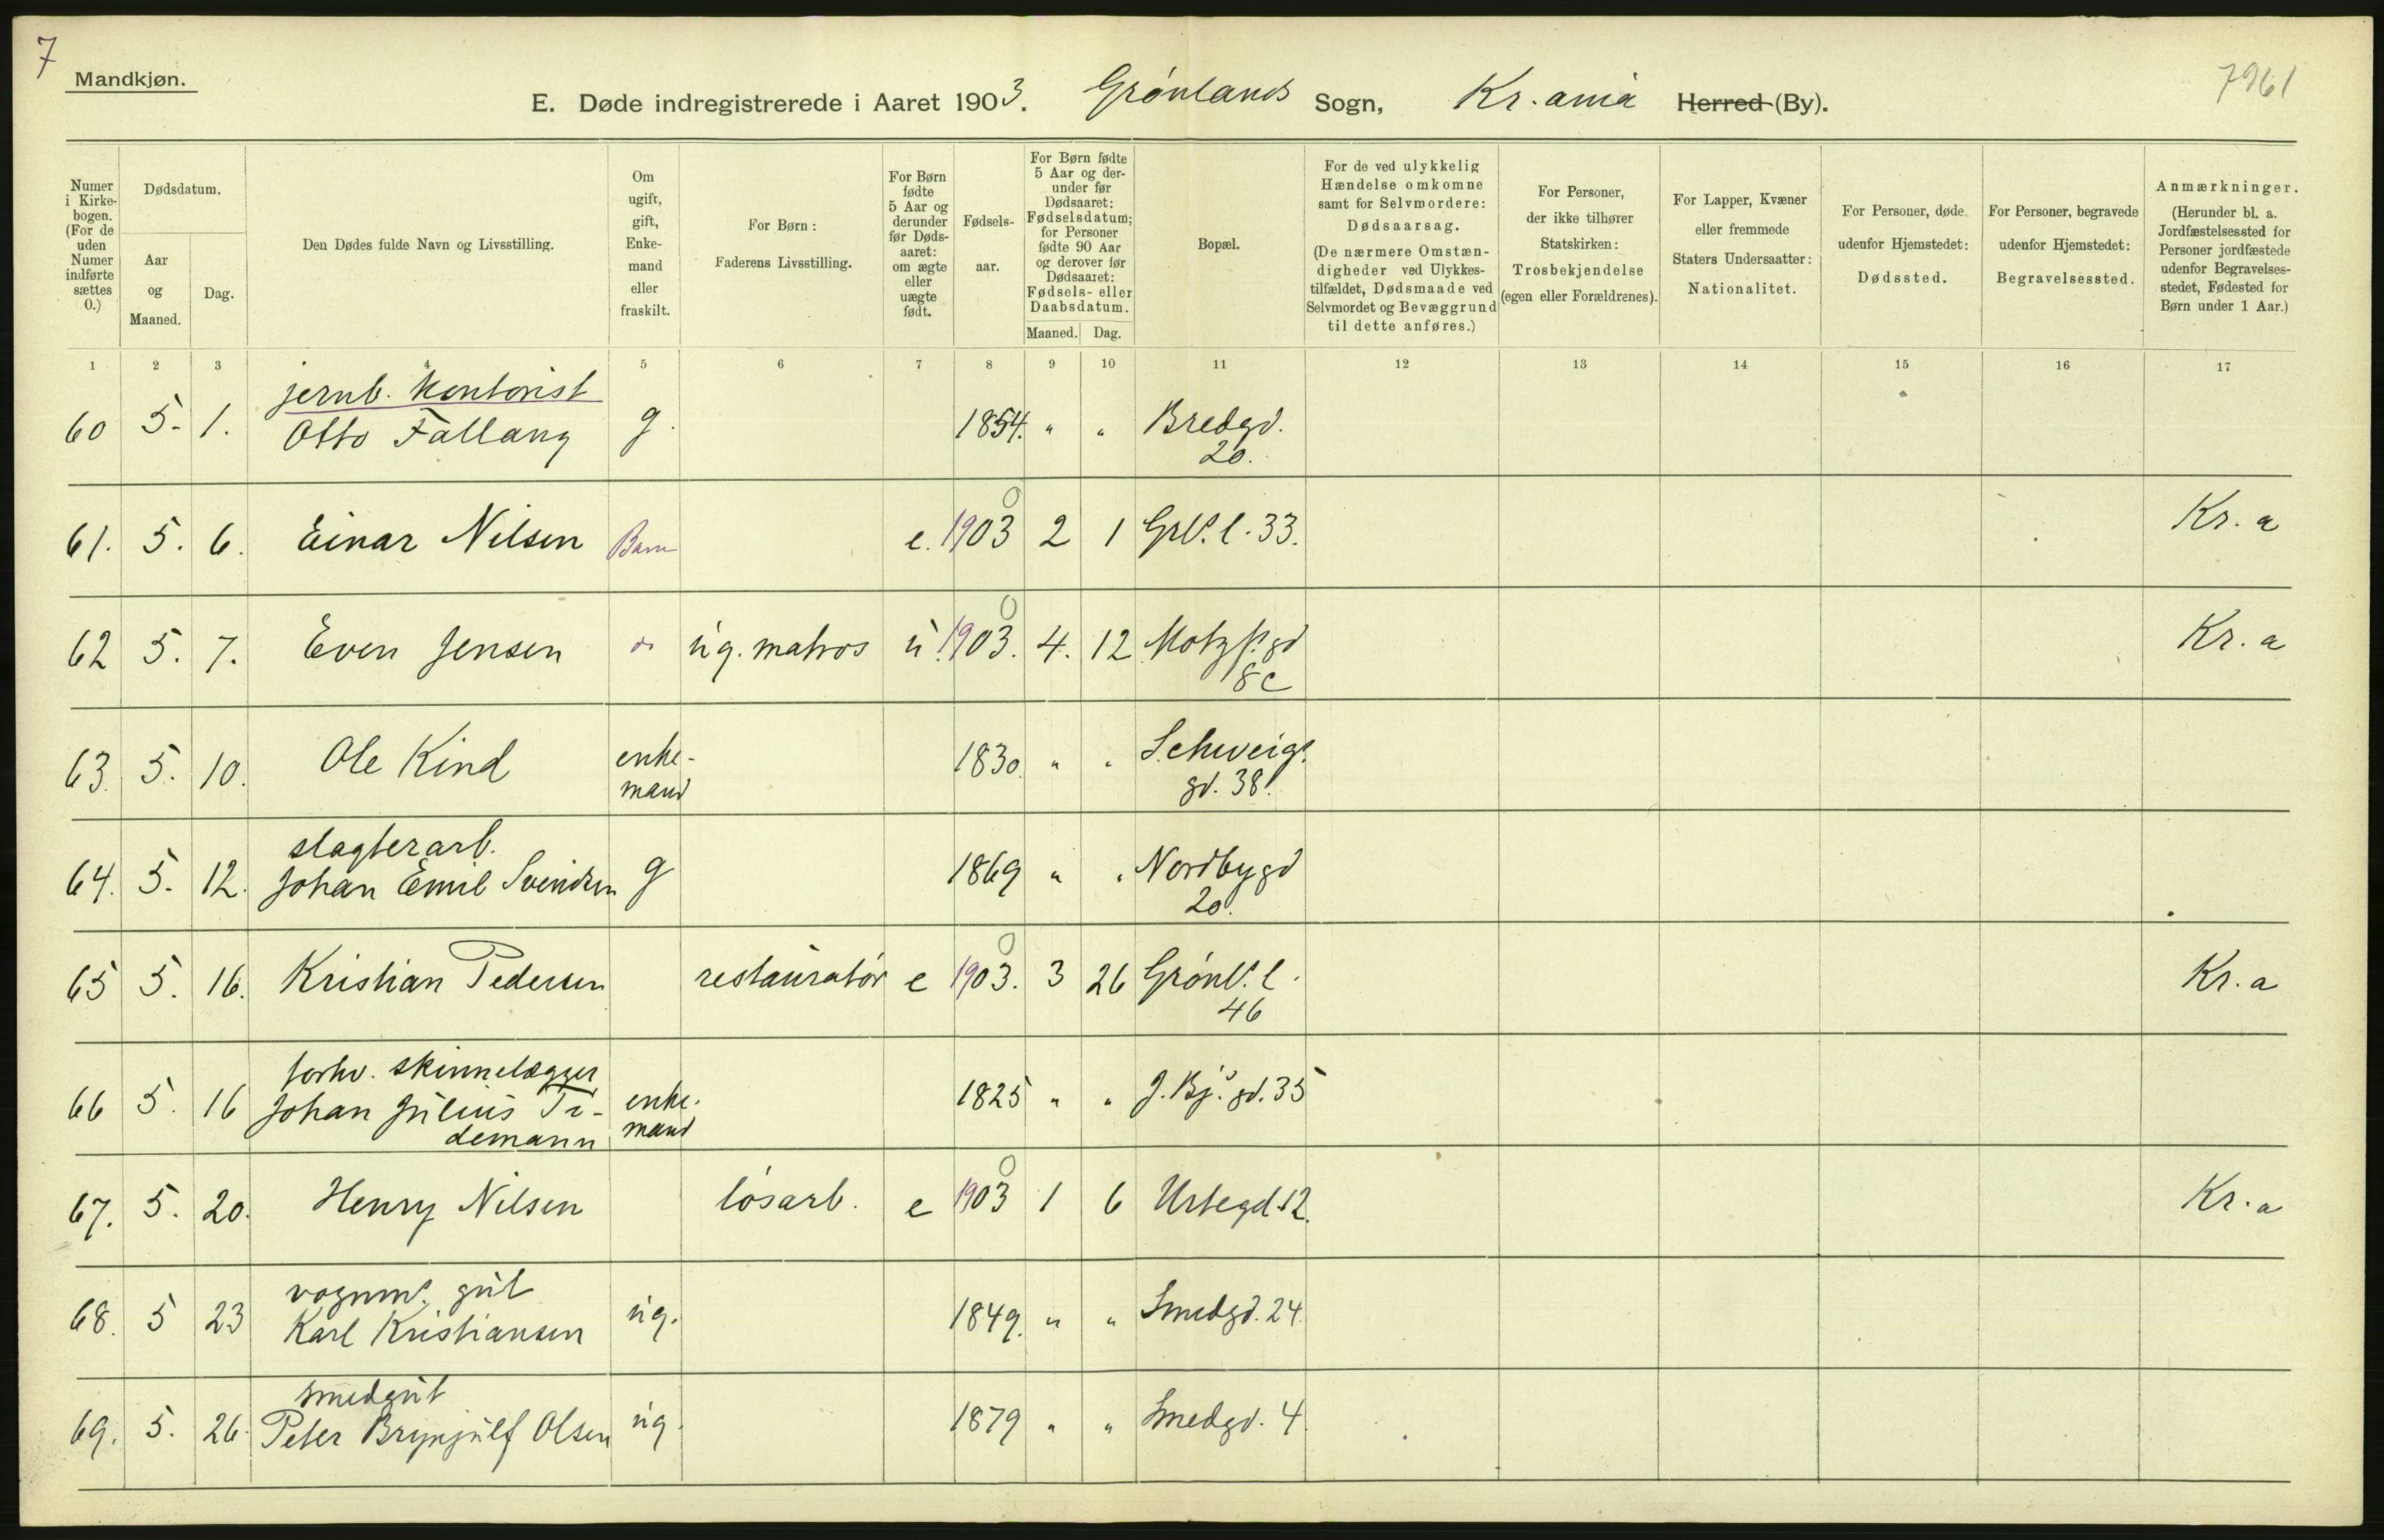 7
Mandkjøn.
E. Døde indregistrerede i Aaret 1903. Grønlands Sogn, Kr.ania Herred (By).
7961
Numer i Kirkebogen. (For de uden Numer indførte sættes 0.)
Dødsdatum.
Aar og Maaned.
Dag.
Den Dødes fulde Navn og Livsstilling.
Om ugift, gift, Enkemand eller fraskilt.
For Børn: Faderens Livsstilling.
For Børn fødte 5 Aar og derunder før Dødsaaret: om ægte eller uægte født.
Fødselsaar.
For Børn fødte 5 Aar og derunder før Dødsaaret: Fødselsdatum; for Personer fødte 90 Aar og derover før Dødsaaret: Fødsels- eller Daabsdatum.
Maaned. Dag.
Bopæl.
For de ved ulykkelig Hændelse omkomne samt for Selvmordere: Dødsaarsag. (De nærmere Omstændigheder ved Ulykkestilfældet, Dødsmaade ved Selvmordet og Bevæggrund til dette anføres.)
For Personer, der ikke tilhører Statskirken: Trosbekjendelse (egen eller Forældrenes).
For Lapper, Kvæner eller fremmede Staters Undersaatter: Nationalitet.
For Personer, døde udenfor Hjemstedet: Dødssted.
For Personer, begravede udenfor Hjemstedet: Begravelsessted.
Anmærkninger. (Herunder bl. a. Jordfæstelsessted for Personer jordfæstede udenfor Begravelsesstedet, Fødested for Børn under 1 Aar.)
1 2 3 4 5 6 7 8 9 10 11 12 13 14 15 16 17
jernb. kontorist
60 5. 1. Otto Fallang g. 1854. " " Bredgd.
20.
61. 5. 6. Einar Nilsen Barn e. 1903 2 1 Grl. l. 33. Kr. a
0
62 5. 7. Even Jensen do ug. matros u. 1903. 4. 12 Motzf. gd Kr. a
0
8c
63. 5. 10. Ole Kind enke- 1830. " " Schweigs
mand gd. 38.
slagterarb.
64. 5. 12. Johan Emil Svendsen g 1869 " " Nordbygd
20.
65 5. 16. Kristian Pedersen restauratør e 1903. 3 26 Grønl. l. Kr. a
0
46
forhv. skinnelægger
66 5. 16 Johan Julius Ti- enke- 1825 " " J. Bj. gd. 35
demann mand
67. 5. 20. Henry Nilsen løsarb. e 1903 1 6 Urtegd. 12. Kr. a
0
vognm. gut
68. 5 23 Karl Kristiansen ug. 1849. " " Smedgd. 24.
smedgut
69. 5. 26. Peter Brynjulf Olsen ug. 1879 " " Smedgd. 4